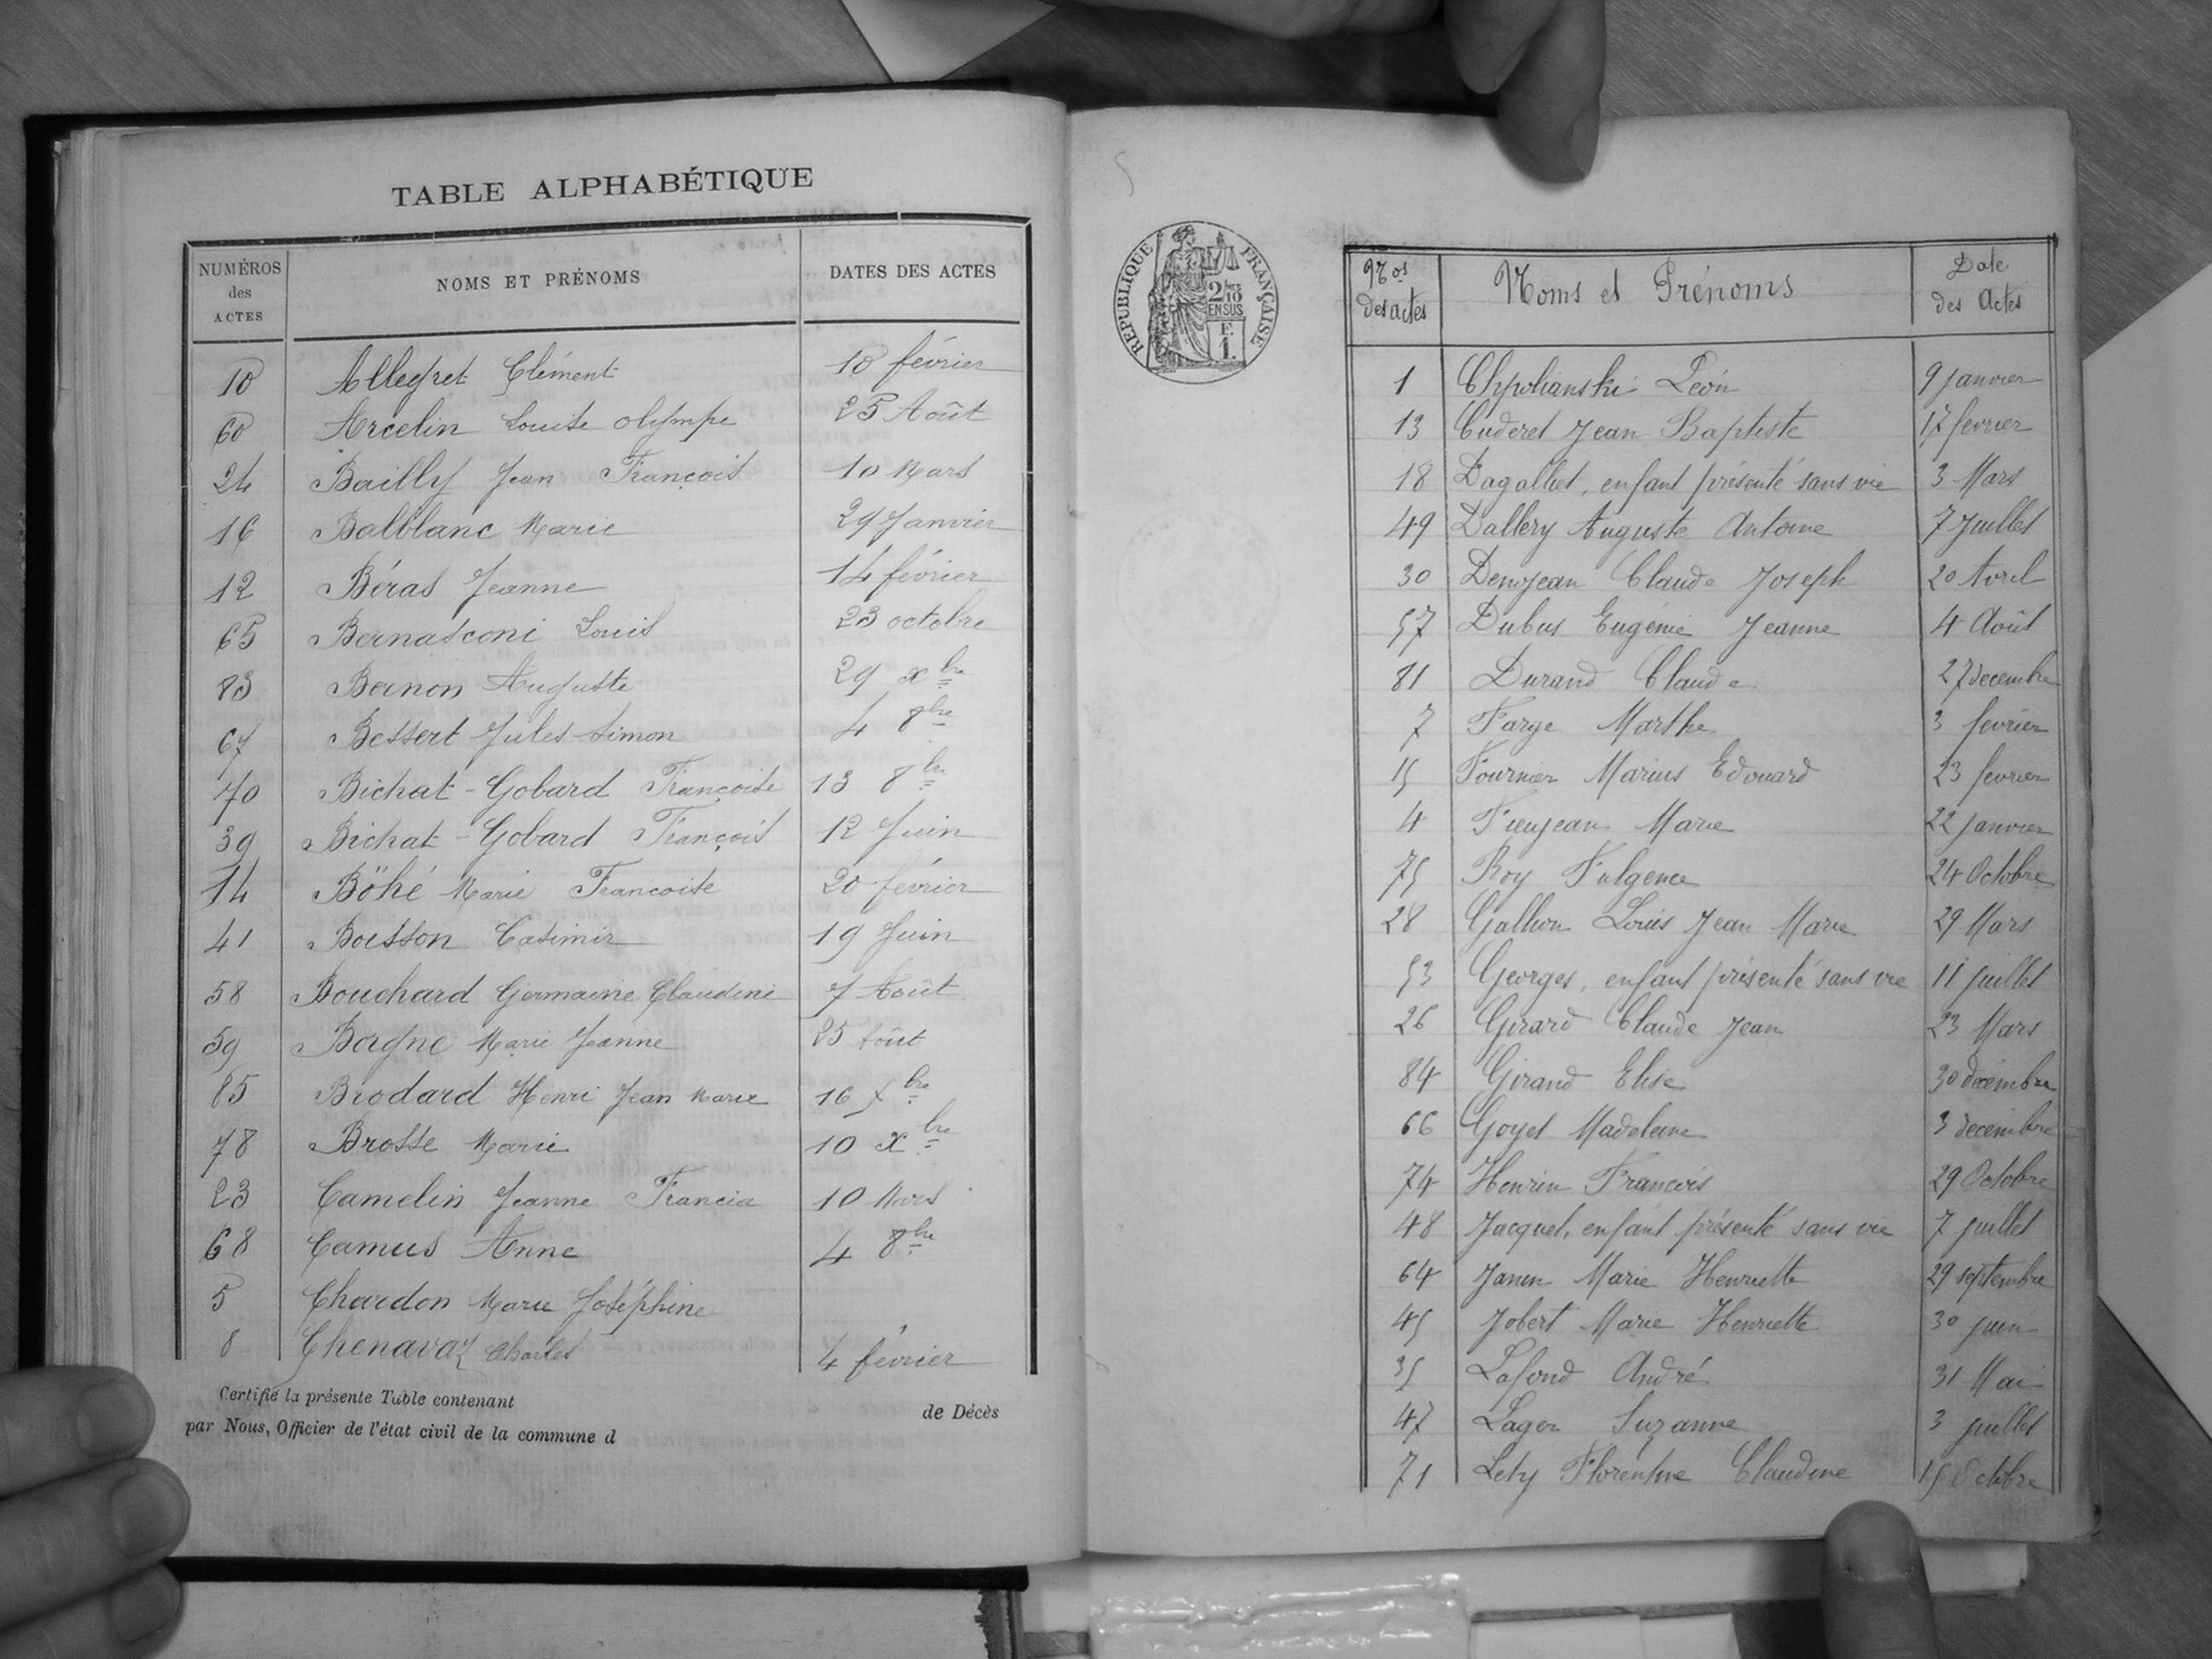 TABLE ALPHABÉTIQUE
NUMÉROS des ACTES NOMS ET PRÉNOMS DATES DES ACTES
10 Allegret Clément 10 février
60 Arcelin Louise Olympe 25 Août
24 Bailly Jean François 10 Mars
16 Balblanc Marie 29 Janvier
12 Béras Jeanne 14 février
65 Bernasconi Louis 23 octobre
83 Bernon Auguste 29 xbre
67 Bessert Jules Simon 4 8bre
70 Bichat-Gobard Françoise 13 8bre
39 Bichat-Gobard François 12 Juin
14 Böhé Marie Francoise 20 février
41 Boisson Casimir 19 Juin
58 Bouchard Germaine Claudine 7 Août
59 Borgne Marie Jeanne 25 Août
85 Brodard Henri Jean Marie 16 xbre
78 Brosse Marie 10 xbre
23 Camelin Jeanne Francia 10 Mars
68 Camus Anne 4 8bre
5 Chardon Marie Joséphine
8 Chenavaz Charles 4 février
Certifié la présente Table contenant de Décès
par Nous, Officier de l'état civil de la commune d
RÉPUBLIQUE FRANÇAISE
2/10 EN SUS
E. 1.
Nos des actes Noms et Prénoms Date des Actes
1 Chpolianski Léon 9 janvier
13 Cuderet Jean Baptiste 17 fevrier
18 Dagallet, enfant présenté sans vie 3 Mars
49 Dallery Auguste Antoine 7 Juillet
30 Denojean Claude Joseph 20 Avril
57 Dubus Eugénie Jeanne 4 Août
81 Durand Claude 27 decembre
7 Farge Marthe 3 fevrier
15 Fournier Marius Edouard 23 fevrier
4 Fieujean Marie 22 janvier
75 Roy Fulgence 24 Octobre
28 Gallion Louis Jean Marie 29 Mars
53 Georges, enfant présenté sans vie 11 juillet
26 Girard Claude Jean 23 Mars
84 Girand Elise 30 décembre
66 Goyet Madeleine 3 decembre
74 Henrin Francois 29 Octobre
48 Jacquet, enfant présenté sans vie 7 juillet
64 Janin Marie Henriette 29 septembre
45 Jobert Marie Henriette 30 juin
35 Lafond André 31 Mai
47 Lager Suzanne 3 juillet
71 Lety Florentine Claudine 15 Octobre